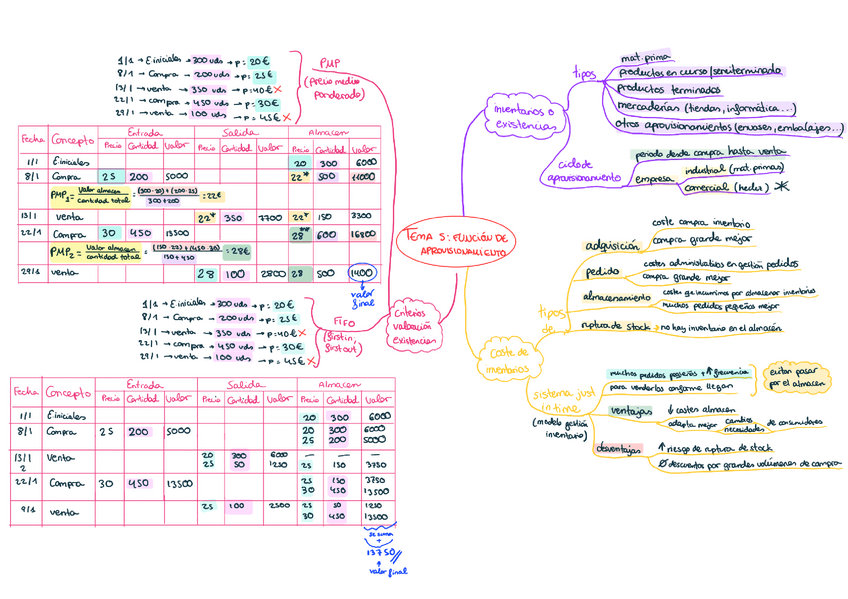 1/1 → E.iniciales → 300 uds → p = 20€
8/1 → Compra → 200 uds → p = 25€
13/1 → venta → 350 uds → p = 40€ ×
22/1 → compra → 450 uds → p = 30€
29/1 → venta → 100 uds → p = 45€ ×
PMP
(precio medio
ponderado)
Fecha Concepto Entrada Salida Almacen
Precio Cantidad Valor Precio Cantidad Valor Precio Cantidad Valor
1/1 E.iniciales 20 300 6000
8/1 Compra 25 200 5000 22* 500 11000
PMP1 = Valor almacen / cantidad total = (300·20)+(200·25) / 300+200 = 22€
13/1 venta 22* 350 7700 22* 150 3300
22/1 Compra 30 450 13500 28** 600 16800
PMP2 = Valor almacen / cantidad total = (150·22)+(450·30) / 150+450 = 28€
29/1 venta 28 100 2800 28 500 1400
valor
final
1/1 → E.iniciales → 300 uds → p = 20€
8/1 → Compra → 200 uds → p = 25€
13/1 → venta → 350 uds → p = 40€ ×
22/1 → compra → 450 uds → p = 30€
29/1 → venta → 100 uds → p = 45€ ×
FIFO
(firstin,
firstout)
Criterios
valoración
existencias
Fecha Concepto Entrada Salida Almacen
Precio Cantidad Valor Precio Cantidad Valor Precio Cantidad Valor
1/1 E.iniciales 20 300 6000
8/1 Compra 25 200 5000 20 300 6000
25 200 5000
13/1 Venta 20 300 6000 — — —
2 25 50 1250 25 150 3750
22/1 Compra 30 450 13500 25 150 3750
30 450 13500
9/1 venta 25 100 2500 25 50 1250
30 450 13500
se suma
+
13750
valor final
TEMA 5: FUNCIÓN DE
APROVISIONAMIENTO
inventarios o
existencias
tipos
mat. prima
productos en curso/semiterminado
productos terminados
mercaderías (tiendas, informática...)
otros aprovisionamientos (envases, embalajes...)
ciclo de
aprovisionamiento
periodo desde compra hasta venta
empresa
industrial (mat. primas)
comercial (hecho) *
coste de
inventarios
tipos
de
adquisición
coste compra inventario
compra grande mejor
pedido
costes administrativos en gestión pedidos
compra grande mejor
almacenamiento
costes q incurrimos por almacenar inventarios
muchos pedidos pequeños mejor
ruptura de stock → no hay inventario en el almacén
sistema just
in time
(modelo gestión
inventario)
muchos pedidos pequeños + ↑ frecuencia
para venderlos conforme llegan
evitan pasar
por el almacen
ventajas
↓ costes almacen
adapta mejor cambios necesidades de consumidores
desventajas
↑ riesgo de ruptura de stock
Ø descuentos por grandes volúmenes de compra